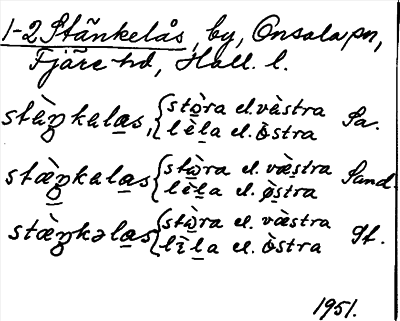 1-2 Stänkelås, by, Onsala sn,
Fjäre hd, Hall. l.
stæ̀ŋkalas, { stò̱ra el. væ̀stra Sa.
lè̱la el. ò̱stra
stæ̀ŋkalas { stò̱ra el. væ̀stra Sand.
lè̱la el. ø̀stra
stæ̀ŋkəlas { stò̱ra el. væ̀stra St.
lì̱la el. ò̱stra
1951.